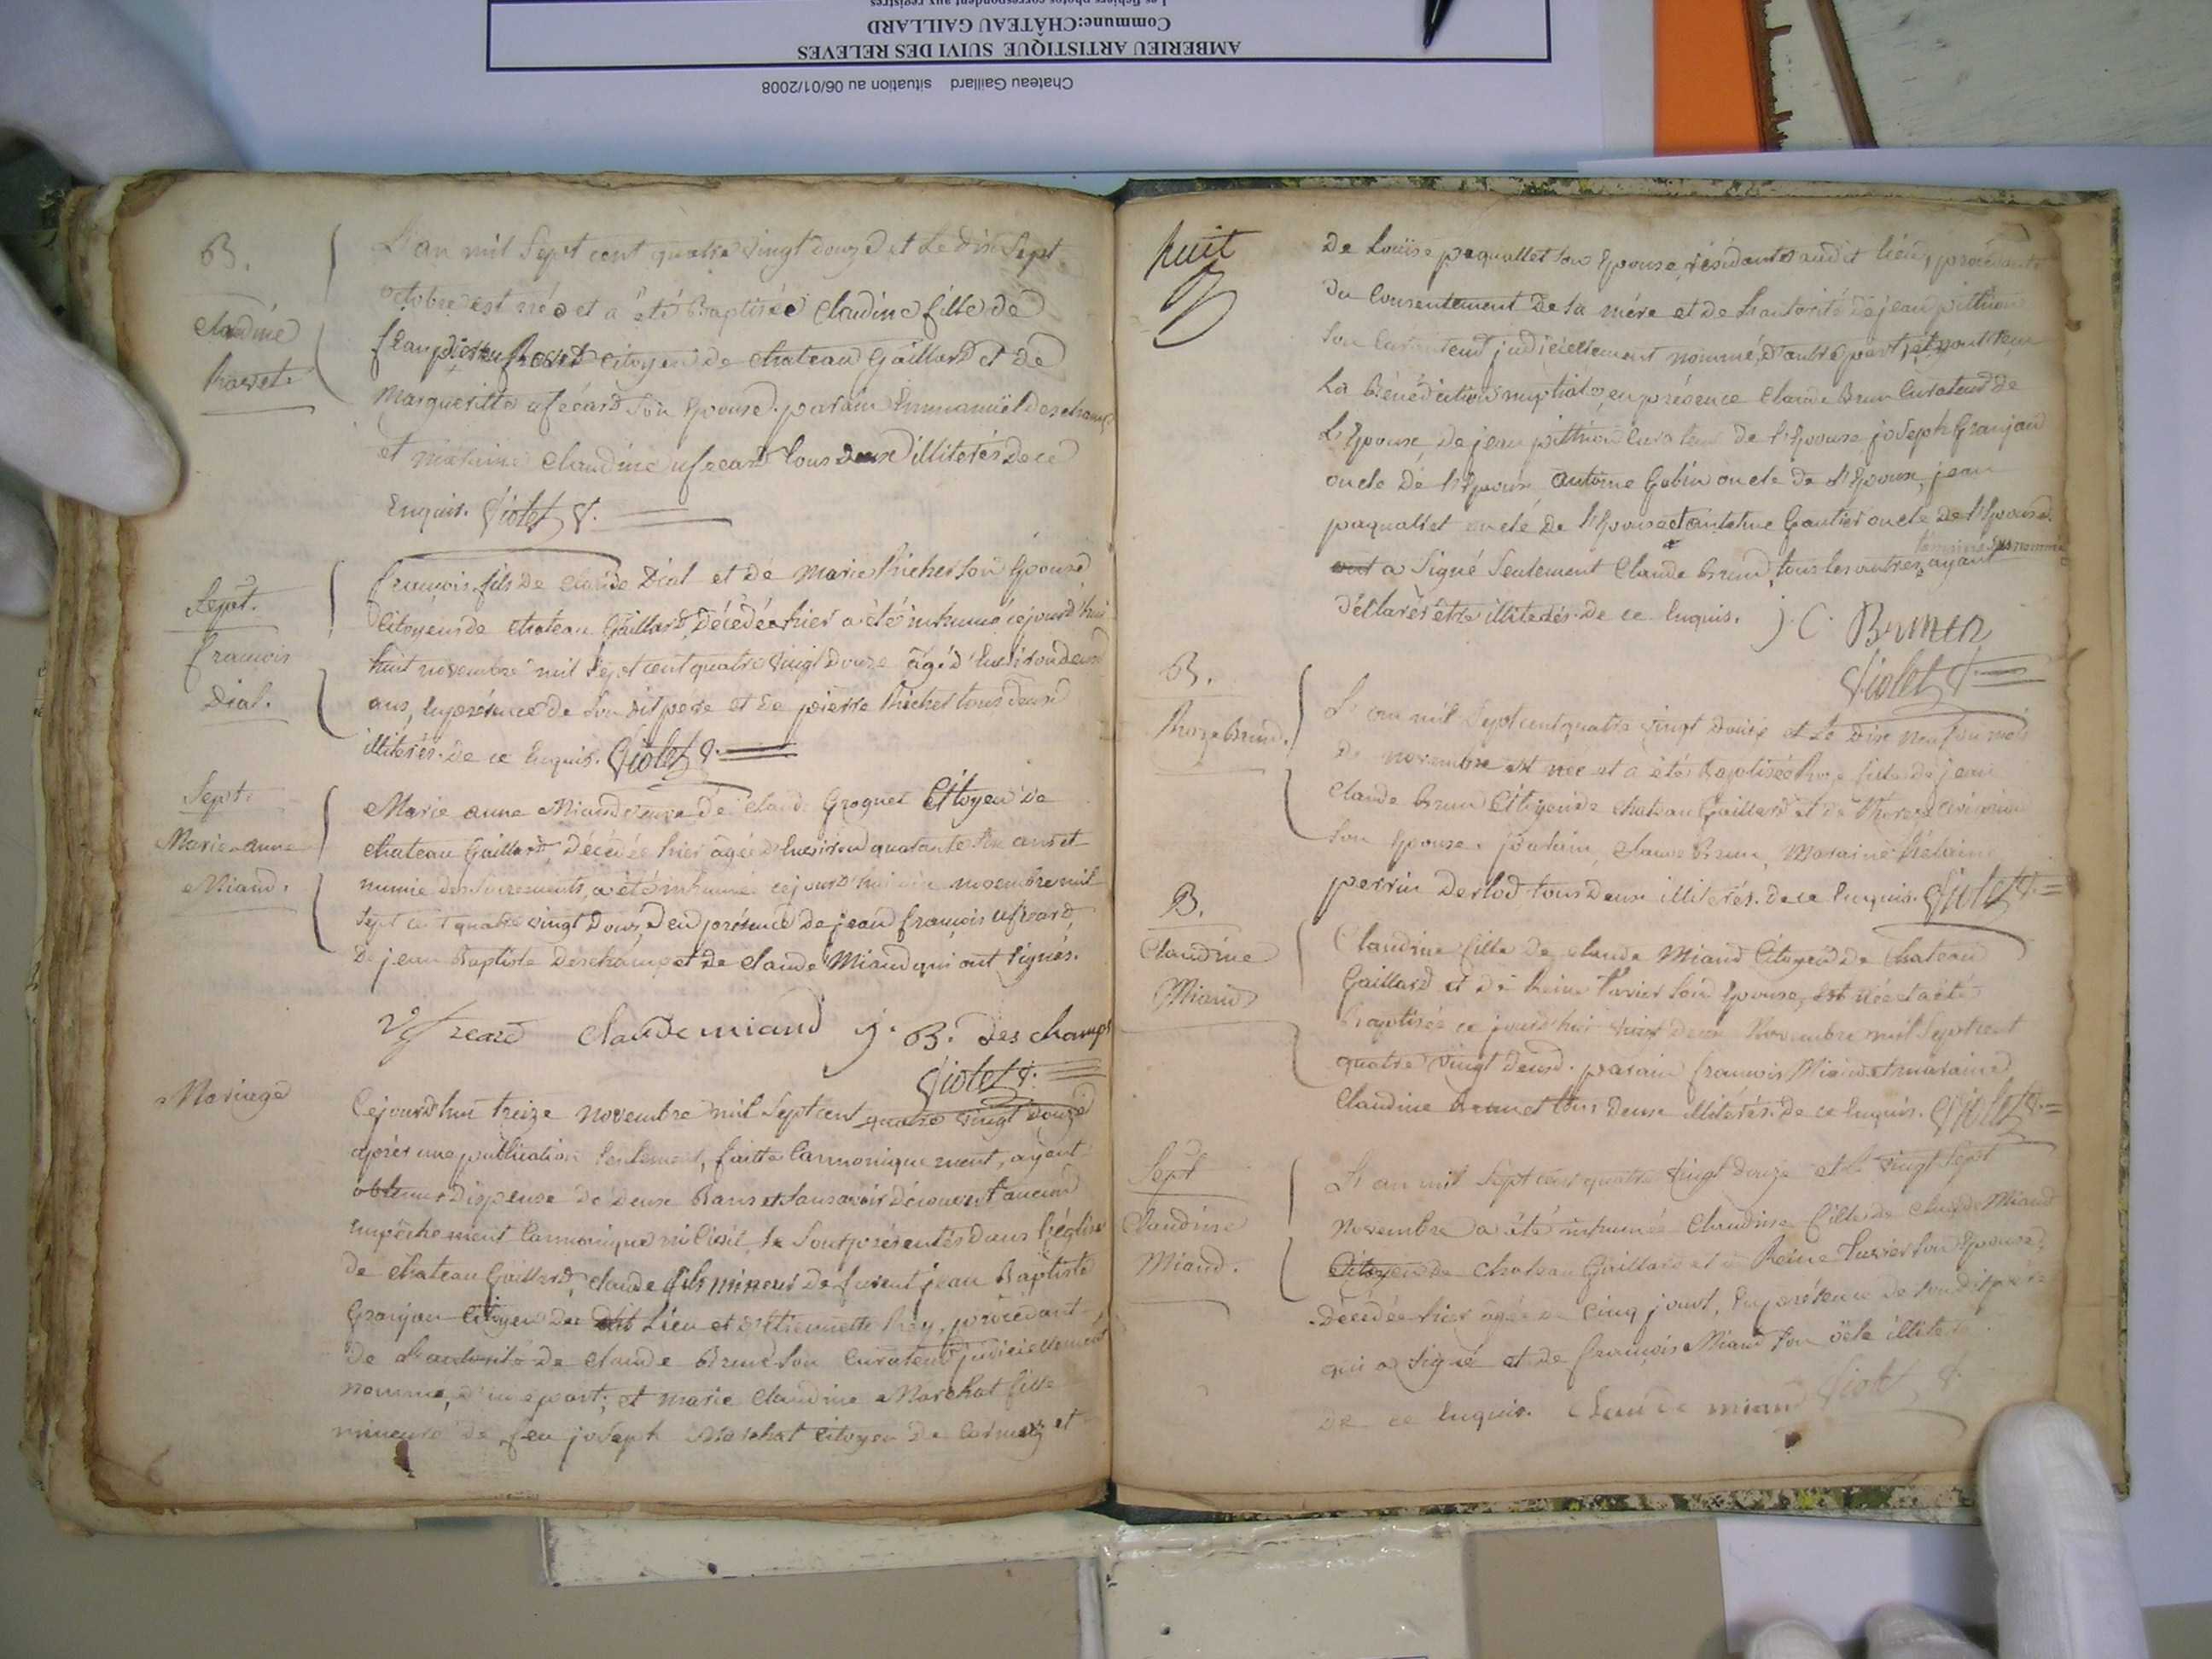 Les fichiers photos correspondent aux registres
Commune:CHÂTEAU GAILLARD
AMBERIEU ARTISTIQUE SUIVI DES RELEVES
Chateau Gaillard situation au 06/01/2008
B.
Claudine
L'an mil Sept cent quatre vingt douze et Le dix Sept
octobre est née et a été Baptisée Claudine fille de
citoyen de chateau Gaillard et de
Margueritte ufréard Son Epouse. parain Emmanüel deschamps
et maraine Claudine ufreard tous deux illiterés de ce
Enquis. Violet
Sept.
francois
Dial.
francois fils de claude Dial et de Marie Richer son Epouse
Citoyens de chateau Gaillard, Décédé hier a été inhumé cejourd'hui
huit novembre mil Sept cent quatre vingt douze agé d'Environ deux
ans, En présence de Son dit père et de pierre Richer tous deux
illiterés. De ce Enquis. Violet
Sept.
Marie anne
Miand.
Marie anne Miand veuve de Claude Groguet Citoyen de
chateau Gaillard, Décédée hier agée d'Environ quarante six ans et
munie des Sacrements, a été inhumée cejourd'hui novembre mil
Sept cent quatre vingt douze, en présence de jean françois ufreard,
De jean Baptiste Deschamp et de claude Miand qui ont Signés.
Ufreard Claude miand j. B. des champs
Violet
Mariage
Cejourd'hui treize novembre mil Sept cent quatre vingt douze
après une publication Seulement, faitte Cannoniquement, ayant
obtenus dispense de deux Bans et Sans avoir découvert aucun
empêchement Cannonique ni Civil, Se Sont présentés dans L'église
de chateau Gaillard, claude fils mineur de furent jean Baptiste
Granjan Citoyen du dit Lieu et d'Etiennette Rey, procédant
De L'autorité de claude Brun Son Curateur judiciellement
nommé, d'une part; et marie Claudine Marchat fille
mineure de feu joseph Marchat Citoyen de Cormoz et
huit
De Louïse paquallet son Epouse, résidante audit lieu, procédante
Du Consentement de Sa mère et de L'autorité de jean pittion
Son Curateur judiciellement nommé, d'autre part, et
La Bénédiction nuptiale, en présence Claude Brun Curateur de
L'Epoux, De jean pittion Curateur de l'Epouse, joseph Granjan
oncle de l'Epoux, Antoine Gobin oncle de l'Epoux, jean
paquallet oncle de l'Epouse et antoine Gautier oncle de l'Epouse.
témoins susnommés
ont a Signé Seulement Claude brun, tous les autres ayant
déclarés être illiterés. De ce Enquis. J. C. Brunen
Violet
B.
Roze Brun.
L'an mil Sept cent quatre vingt douze et Le dix neuf du mois
De novembre est née et a été Baptisée Roze fille de jean
Claude Brun Citoyen de chateau Gaillard et de therese
Son Epouse. parain, Claude Brun, Maraine
perrin tous deux illiterés. De ce Enquis. Violet
B.
Claudine
Miand
Claudine fille de claude Miand Citoyen de chateau
Gaillard et de Reine Son Epouse, Est née et a été
Baptisée cejourd'hui vingt deux Novembre mil Sept cent
quatre vingt deux. parain francois Miand et maraine
Claudine tous deux illiterés. De ce Enquis. Violet
Sept
Claudine
Miand.
L'an mil Sept cent quatre vingt douze et Le vingt Sept
Novembre a été inhumée Claudine fille de claude Miand
Citoyen de chateau Gaillard et de Reine Son Epouse,
Décédée hier agée de Cinq jours, En présence de Son dit père
qui a Signé et de francois Miand Son illiteré
De ce Enquis. Claude miand Violet